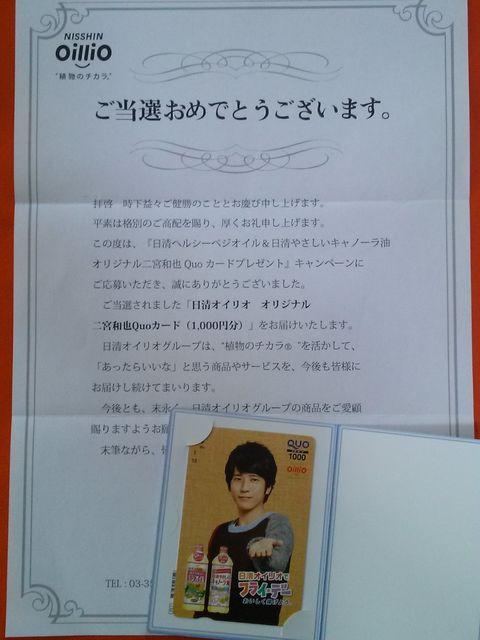 NISSHIN
OilliO
"植物のチカラ。"
ご当選おめでとうございます。
拝啓 時下益々ご健勝のこととお慶び申し上げます。
平素は格別のご高配を賜り、厚くお礼申し上げます。
この度は、『日清ヘルシーベジオイル&日清やさしいキャノーラ油
オリジナル二宮和也 Quo カードプレゼント』キャンペーンに
ご応募いただき、誠にありがとうございました。
ご当選されました「日清オイリオ オリジナル
二宮和也Quoカード(1,000円分)」をお届けいたします。
日清オイリオグループは、"植物のチカラ®"を活かして、
「あったらいいな」と思う商品やサービスを、今後も皆様に
お届けし続けてまいります。
今後とも、末永く、日清オイリオグループの商品をご愛顧
賜りますようお
末筆ながら、
QUO
1000
OilliO
日清オイリオで
フライ・デー
おいしく揚げよう。
TEL:03-3